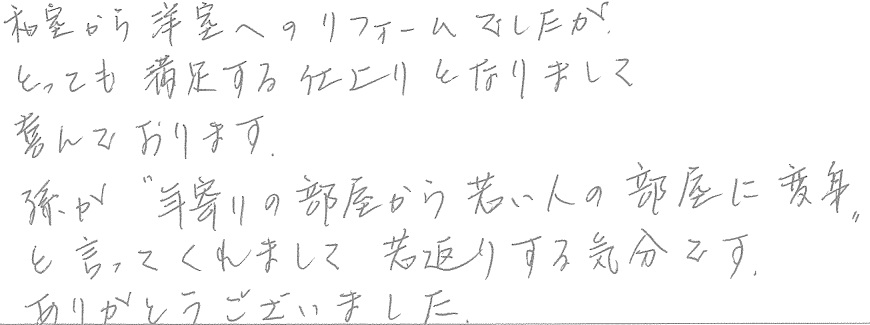 和室から洋室へのリフォームでしたが.
とっても満足する仕上りとなりまして
喜んでおります.
孫が〝年寄りの部屋から若い人の部屋に変身〟
と言ってくれまして 若返りする気分です.
ありがとうございました.